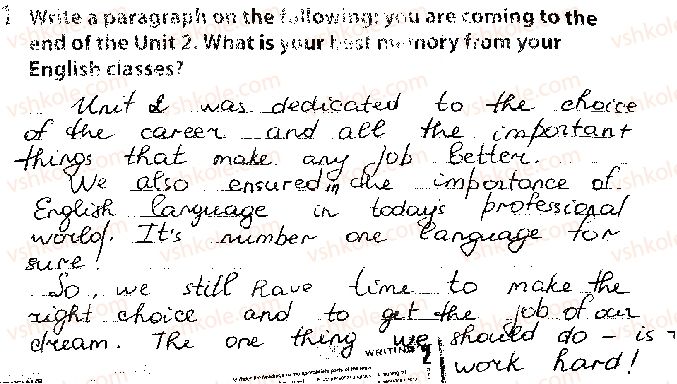 1 Write a paragraph on the following: you are coming to the
end of the Unit 2. What is your best memory from your
English classes?
Unit 2 was dedicated to the choice
of the career and all the important
things that make any job better.
We also ensured in the importance of
English language in today's professional
world. It's number one language for
sure!
So, we still have time to make the
right choice and to get the job of our
dream. The one thing we should do - is
work hard!
WRITING 2
vshkole.com